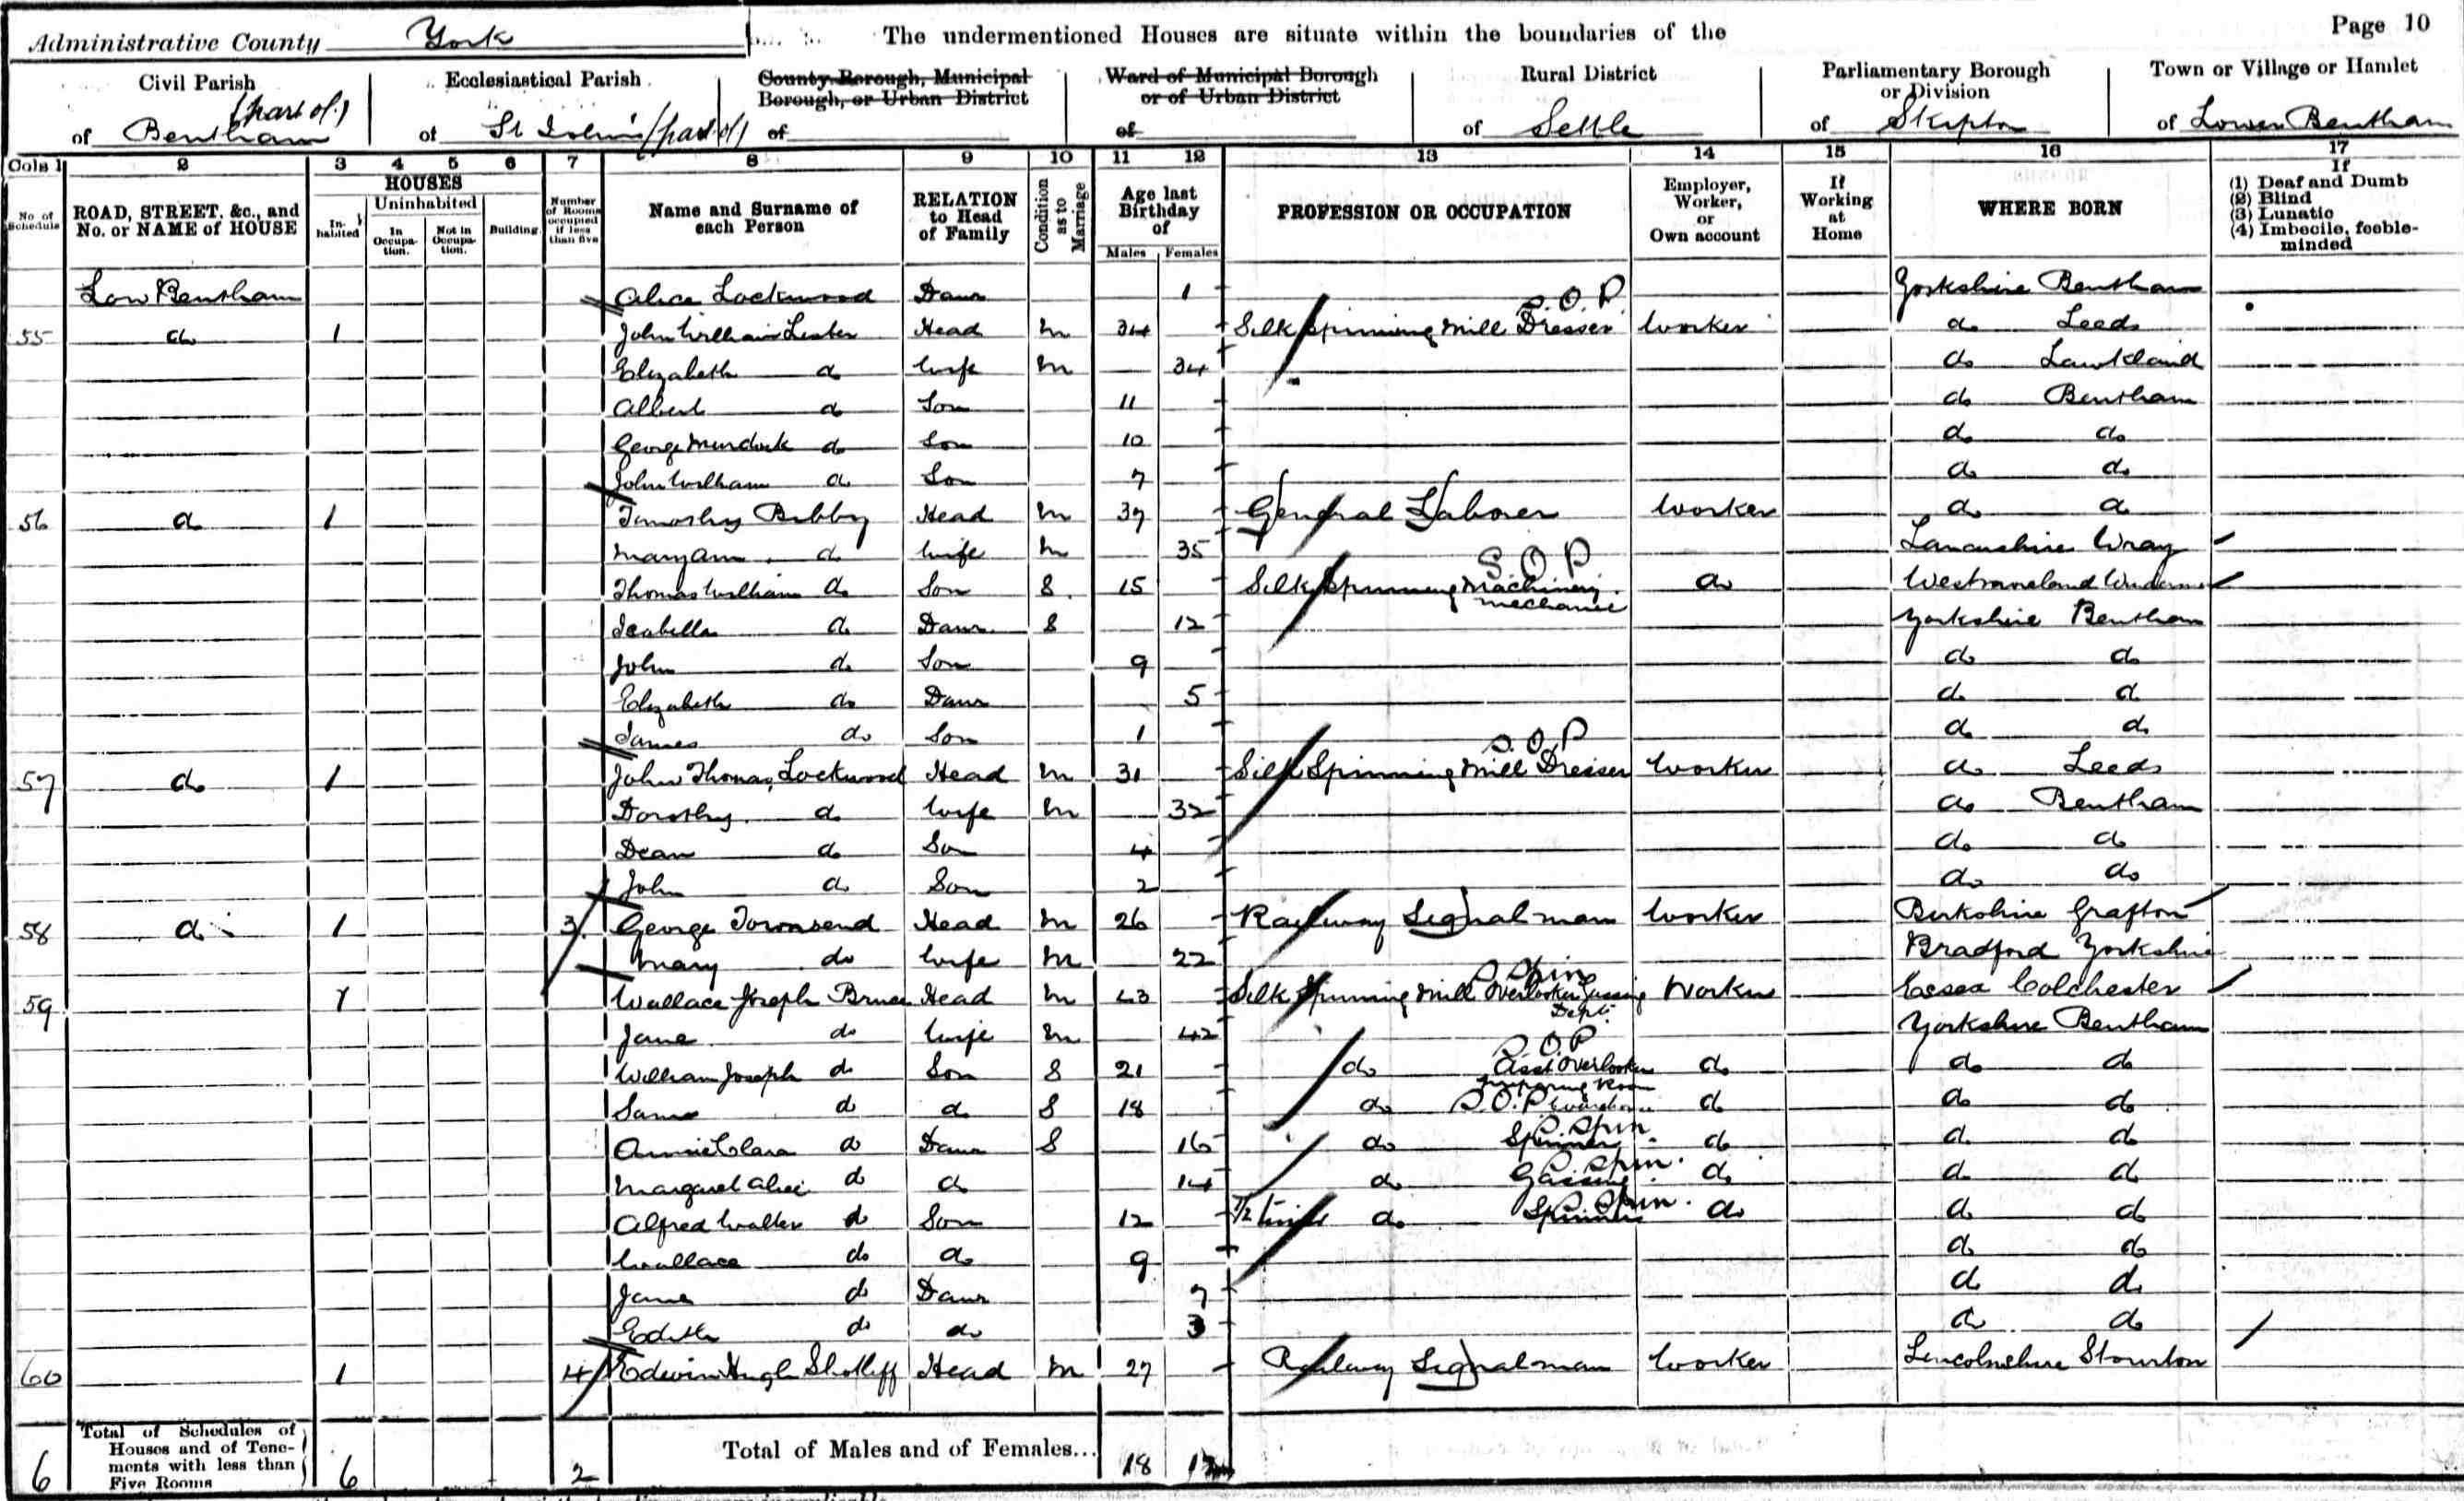 Administrative County York The undermentioned Houses are situate within the boundaries of the Page 10
Civil Parish of Bentham (part of)
Ecclesiastical Parish of St John's (part of)
County Borough, Municipal Borough, or Urban District of
Ward of Municipal Borough or of Urban District of
Rural District of Settle
Parliamentary Borough or Division of Skipton
Town or Village or Hamlet of Lower Bentham
Cols 1 2 3 4 5 6 7 8 9 10 11 12 13 14 15 16 17
No of Schedule
ROAD, STREET, &c., and No. or NAME of HOUSE
HOUSES
Inhabited
Uninhabited
In Occupation.
Not in Occupation.
Building
Number of Rooms occupied if less than five
Name and Surname of each Person
RELATION to Head of Family
Condition as to Marriage
Age last Birthday of
Males Females
PROFESSION OR OCCUPATION
Employer, Worker, or Own account
If Working at Home
WHERE BORN
If
(1) Deaf and Dumb
(2) Blind
(3) Lunatic
(4) Imbecile, feeble-minded
Low Bentham Alice Lockwood Daur 1 Yorkshire Bentham
S.O.P.
55 do 1 John William Lester Head M 34 Silk Spinning Mill Dresser Worker do Leeds
Elizabeth do Wife M 34 do Lawkland
Albert do Son 11 do Bentham
George Murdock do Son 10 do do
John William do Son 7 do do
56 do 1 Timothy Bibby Head M 37 General Laborer Worker do do
Mary Ann do Wife M 35 Lancashire Wray
S.O.P
Thomas William do Son S 15 Silk Spinning Machinery mechanic do Westmoreland
Isabella do Daur S 12 Yorkshire Bentham
John do Son 9 do do
Elizabeth do Daur 5 do do
James do Son 1 do do
S.O.P
57 do 1 John Thomas Lockwood Head M 31 Silk Spinning Mill Dresser Worker do Leeds
Dorothy do Wife M 32 do Bentham
Dean do Son 4 do do
John do Son 2 do do
58 do 1 3 George Townsend Head M 26 Railway Signal man Worker Berkshire Grafton
Mary do Wife M 22 Bradford Yorkshire
S Spin
59 1 Wallace Joseph Bruce Head M 43 Silk Spinning Mill Overlooker Gassing Dept. Worker Essex Colchester
Jane do Wife M 42 Yorkshire Bentham
S.O.P
William Joseph do Son S 21 do Asst Overlooker do do do
do do S 18 do S.O.P do do do
S. Spin
Annie Clara do Daur S 16 do Spinner do do do
S. Spin.
Margaret Alice do do 14 do Gassing do do do
S. Spin.
Alfred Walter do Son 12 1/2 time do Spinner do do do
Wallace do do 9 do do
Jane do Daur 7 do do
Edith do do 3 do do
60 1 4 Edwin Hugh Head M 27 Railway Signal man Worker Lincolnshire Stourton
6 Total of Schedules of Houses and of Tenements with less than Five Rooms 6 2 Total of Males and of Females... 18